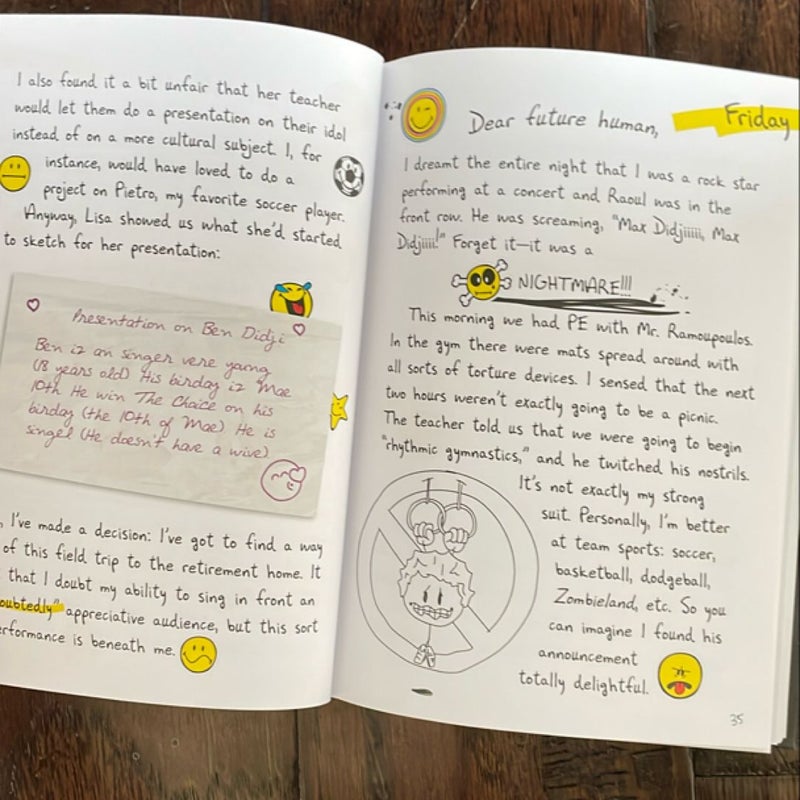 I also found it a bit unfair that her teacher
would let them do a presentation on their idol
instead of on a more cultural subject. I, for
instance, would have loved to do a
project on Pietro, my favorite soccer player.
Anyway, Lisa showed us what she'd started
to sketch for her presentation:
Presentation on Ben Didji
Ben iz an singer vere young
(18 years old) His birday iz Mae
10th He win The Choice on his
birday (the 10th of Mae) He is
singel (He doesn't have a wive)
, I've made a decision: I've got to find a way
of this field trip to the retirement home. It
that I doubt my ability to sing in front an
oubtedly" appreciative audience, but this sort
erformance is beneath me.
Dear future human,
Friday
I dreamt the entire night that I was a rock star
performing at a concert and Raoul was in the
front row. He was screaming, "Max Didjiiiii, Max
Didjiiii!" Forget it—it was a
NIGHTMARE!!!
This morning we had PE with Mr. Ramoupoulos.
In the gym there were mats spread around with
all sorts of torture devices. I sensed that the next
two hours weren't exactly going to be a picnic.
The teacher told us that we were going to begin
"rhythmic gymnastics," and he twitched his nostrils.
It's not exactly my strong
suit. Personally, I'm better
at team sports: soccer,
basketball, dodgeball,
Zombieland, etc. So you
can imagine I found his
announcement
totally delightful.
35